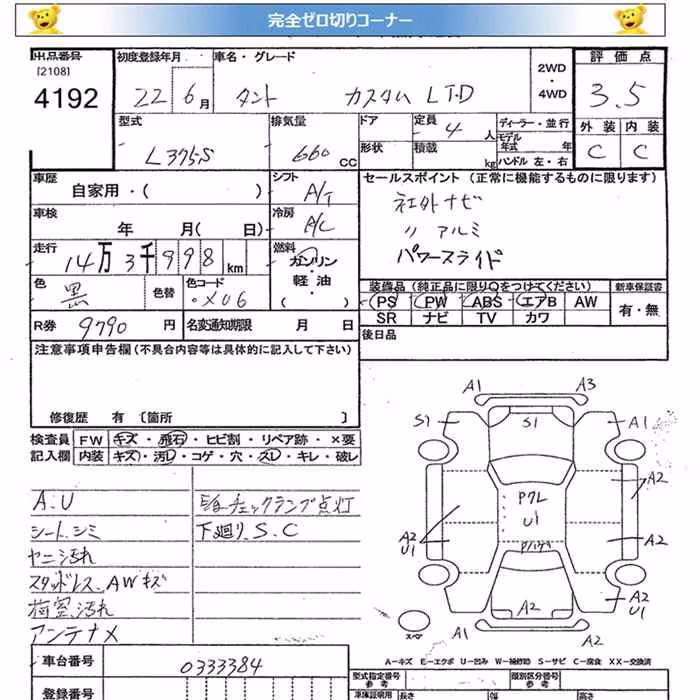 完全ゼロ切りコーナー
出品番号
[2108]
4192
初度登録年月
22 6月
車名・グレード
タント カスタム LTD
2WD
・
4WD
評価点
3.5
外装 内装
C C
型式
L375S
排気量
660 CC
ドア
形状
定員
4 人
積載
kg
ディーラー・並行
モデル
年式 年
ハンドル 左・右
車歴
自家用・( )
シフト
A/T
車検
年 月( 日)
冷房
A/C
走行
14万3千998km
燃料
ガソリン
・
軽油
( )
色
黒
色替
色コード
X06
R券 9790 円
名変通知期限 月 日
セールスポイント (正常に機能するものに限ります)
社外ナビ
〃 アルミ
パワースライド
装備品 (純正品に限り○をつけてください)
PS PW ABS エアB AW
SR ナビ TV カワ
新車保証書
有・無
後日品
注意事項申告欄 (不具合内容等は具体的に記入して下さい)
修復歴 有 〔箇所 〕
検査員 FW キズ・飛石・ヒビ割・リペア跡・×要
記入欄 内装 キズ・汚レ・コゲ・穴・スレ・キレ・破レ
A.U
シートシミ
ヤニ汚れ
スタッドレス、AWキズ
荷室汚れ
アンテナメ
チェックランプ点灯
下廻り S.C
A1 A3
S1 S1 A1
A2
P クレ
U1
A2
U1
A2
A2
A2
U1
スペア
A1 A1
A－キズ E－エクボ U－凹み W－補修跡 S－サビ C－腐食 XX－交換済
車台番号 0333384
登録番号
型式指定番号
参考
類別区分番号
参考
車庫証明用 長さ 幅 高さ